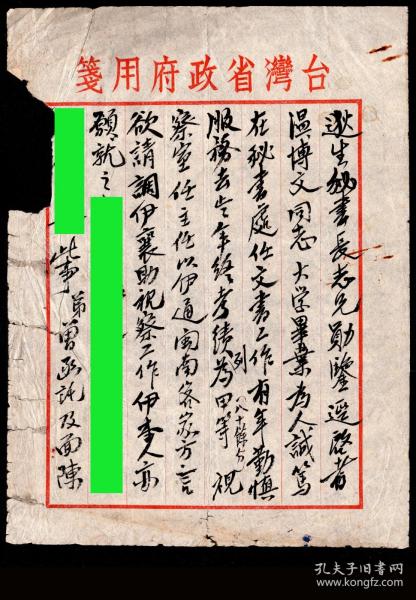 箋用府政省灣台
逖生秘書長志兄勛鑒逕啓者
温博文同志大学畢業為人誠篤
在秘書處任文書工作有年勤慎
服務去年年終考績列為甲等(八十餘分)視
察室任主任以伊通闽南客家方言
欲請調伊襄助視察工作伊本人亦
願就之
此事弟曾函託及面陳
孔夫子旧书网
www.kongfz.com